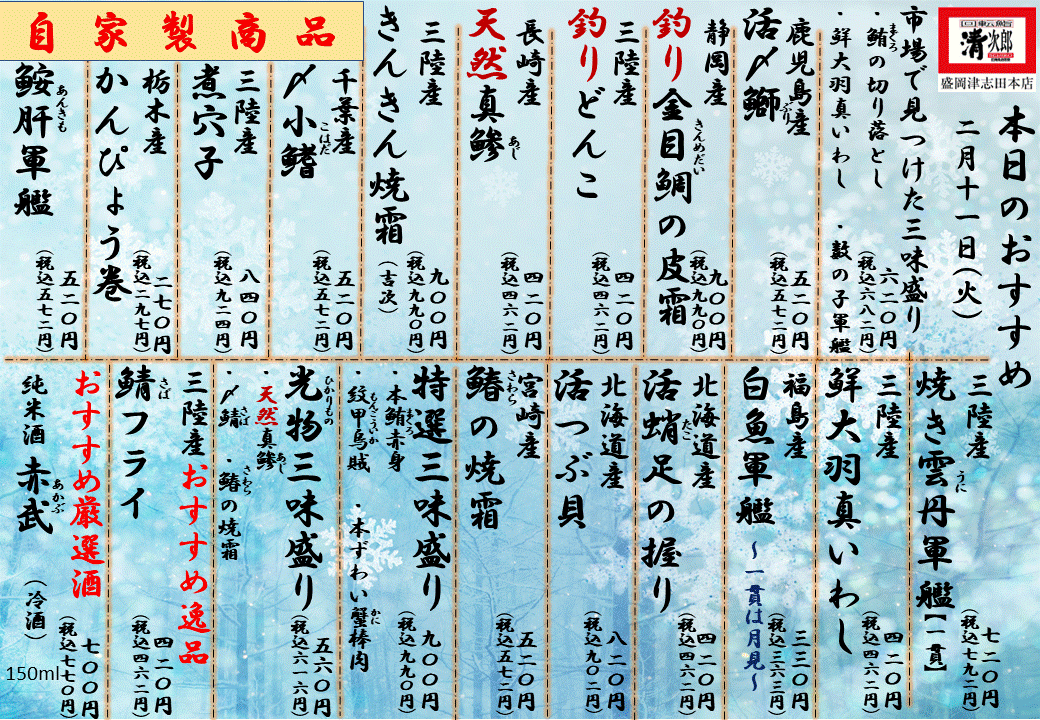 回転鮨
清次郎
SEIJIRO
盛岡津志田本店
本日のおすすめ
二月十一日(火)
市場で見つけた三味盛り
・鮪の切り落とし
まぐろ
・鮮大羽真いわし
・数の子軍艦
六二〇円
(税込六八二円)
鹿児島産
活〆鰤
ぶり
五二〇円
(税込五七二円)
静岡産
釣り金目鯛の皮霜
きんめだい
九〇〇円
(税込九九〇円)
三陸産
釣りどんこ
四二〇円
(税込四六二円)
長崎産
天然真鯵
あじ
四二〇円
(税込四六二円)
三陸産
きんきん焼霜
(吉次)
九〇〇円
(税込九九〇円)
自家製商品
千葉産
〆小鰭
こはだ
五二〇円
(税込五七二円)
三陸産
煮穴子
八四〇円
(税込九二四円)
栃木産
かんぴょう巻
二七〇円
(税込二九七円)
鮟肝軍艦
あんきも
五二〇円
(税込五七二円)
三陸産
焼き雲丹軍艦【一貫】
うに
七二〇円
(税込七九二円)
三陸産
鮮大羽真いわし
四二〇円
(税込四六二円)
福島産
白魚軍艦
~一貫は月見~
三三〇円
(税込三六三円)
北海道産
活蛸足の握り
たこ
四二〇円
(税込四六二円)
北海道産
活つぶ貝
八二〇円
(税込九〇二円)
宮崎産
鰆の焼霜
さわら
五二〇円
(税込五七二円)
特選三味盛り
・本鮪赤身
まぐろ
・紋甲烏賊
もんこういか
・本ずわい蟹棒肉
かに
九〇〇円
(税込九九〇円)
光物三味盛り
ひかりもの
・天然真鯵
あじ
・〆鯖
さば
・鰆の焼霜
さわら
五六〇円
(税込六一六円)
おすすめ逸品
三陸産
鯖フライ
さば
四二〇円
(税込四六二円)
おすすめ厳選酒
純米酒 赤武
あかぶ
(冷酒)
150ml
七〇〇円
(税込七七〇円)